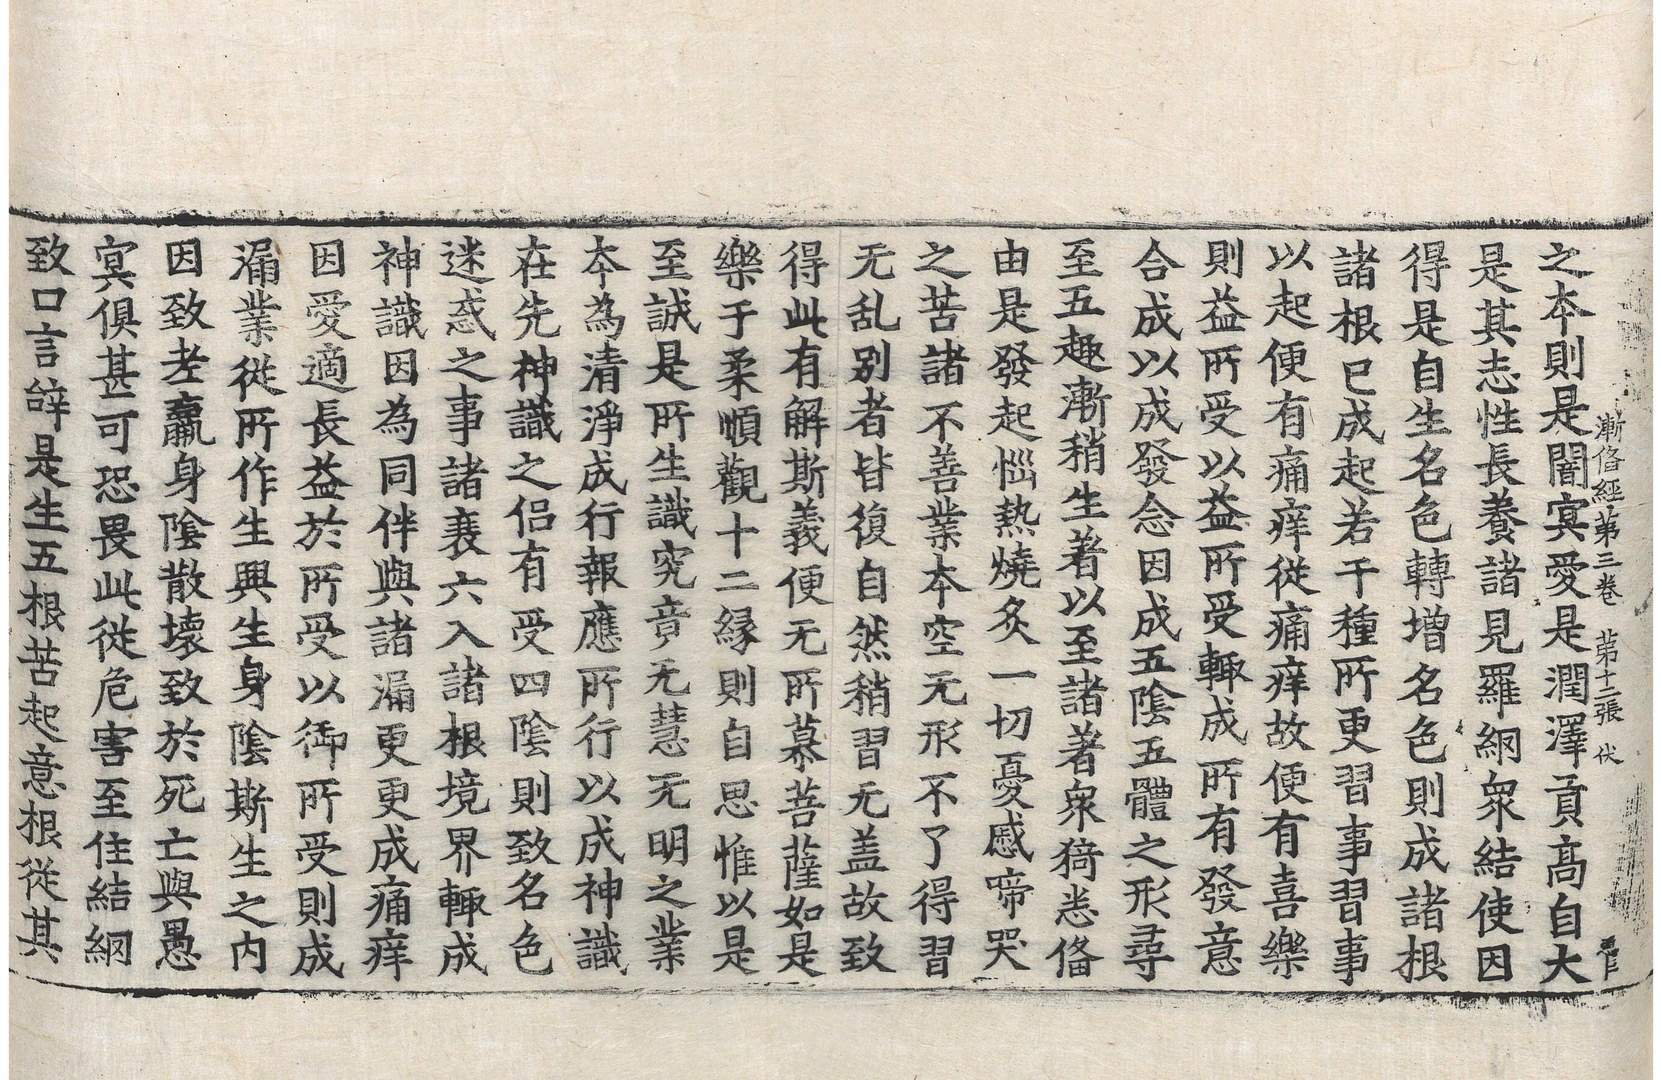 漸俻經第三卷 第十二張 伏
之本則是闇㝠愛是潤澤貢高自大
是其志性長養諸見羅網衆結使因
得是自生名色轉增名色則成諸根
諸根已成起若干種所更習事習事
以起便有痛痒從痛痒故便有喜樂
則益所受以益所受輙成所有發意
合成以成發念因成五陰五體之形尋
至五趣漸稍生著以至諸著衆猗恙俻
由是發起惱熱燒炙一切憂慼啼哭
之苦諸不善業本空无形不了得習
无乱別者皆復自然稍習无盖故致
得此有解斯義便无所慕菩薩如是
樂于柔順觀十二緣則自思惟以是
至誠是所生識究竟无慧无明之業
本為清淨成行報應所行以成神識
在先神識之侣有受四陰則致名色
迷惑之事諸裹六入諸根境界輙成
神識因為同伴與諸漏更更成痛痒
因愛適長益於所受以御所受則成
漏業從所作生興生身陰斯生之内
因致老羸身陰散壞致於死亡與愚
㝠俱甚可恐畏此從危害至住結網
致口言辝是生五根苦起意根從其